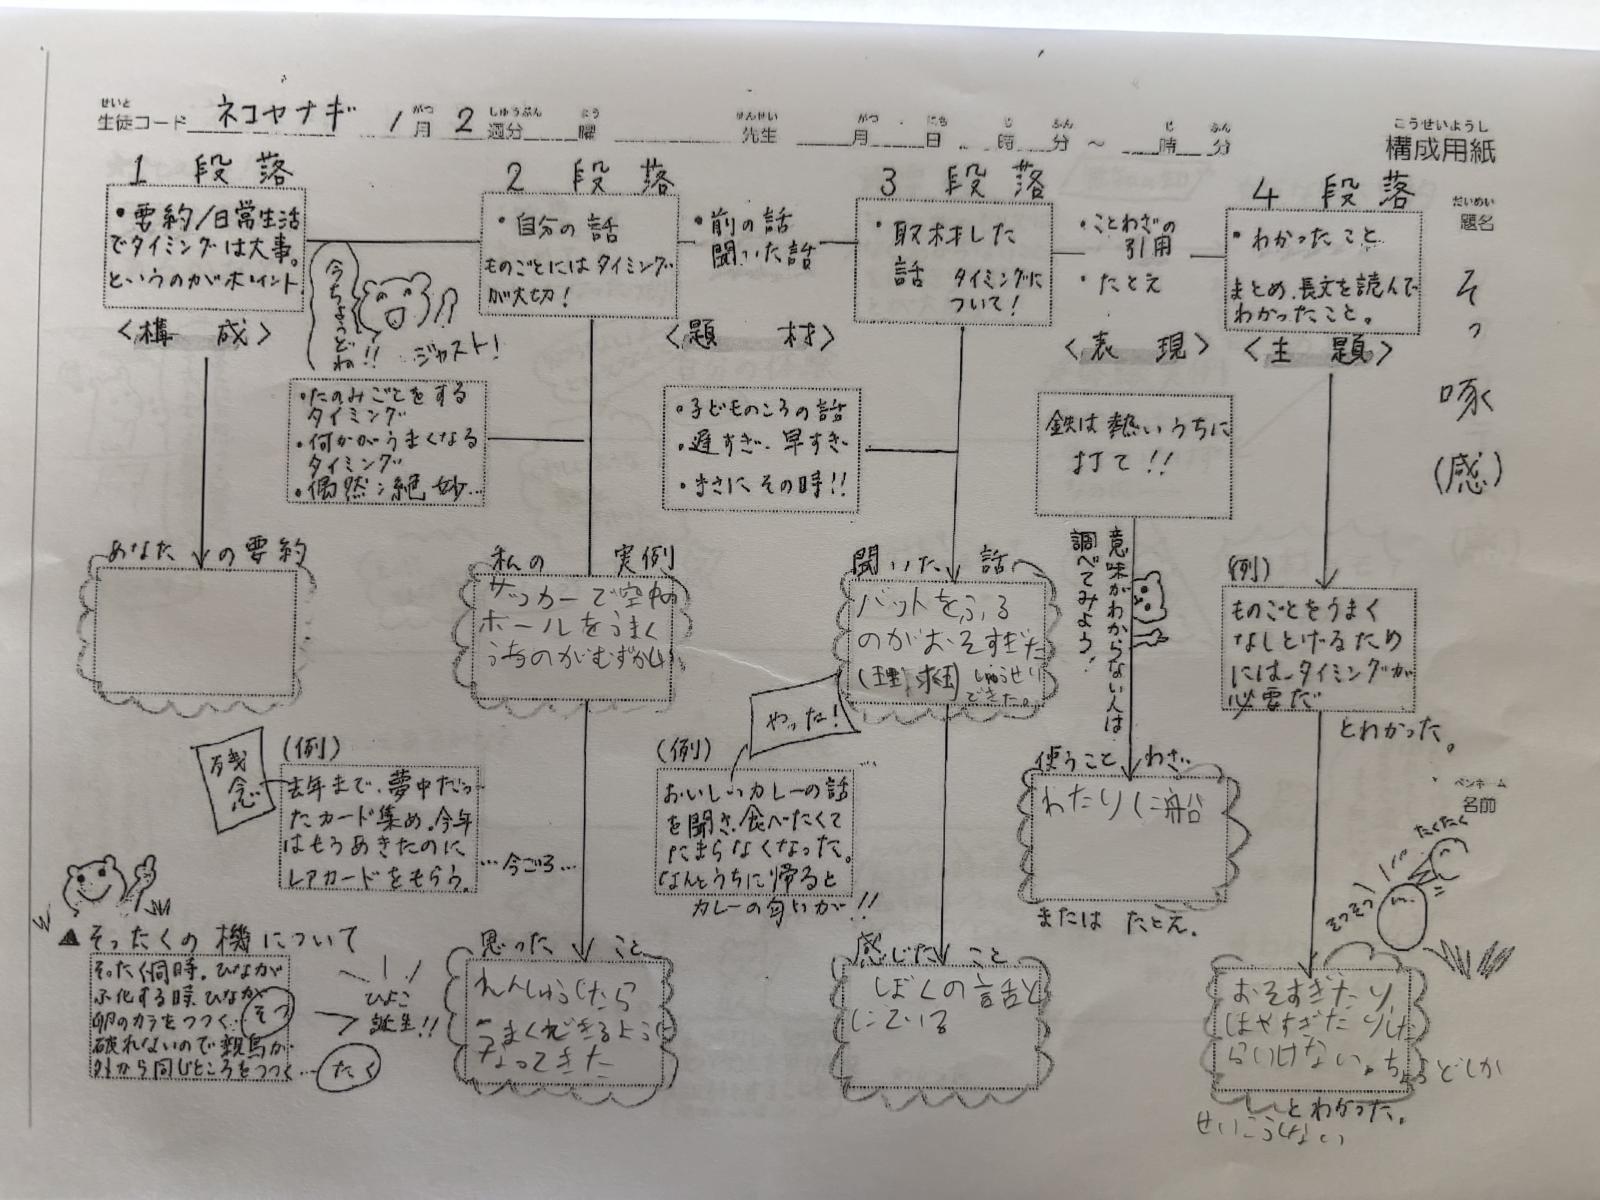 せいと
生徒コード ネコヤナギ 1月 2週分 曜 先生 月 日 時 分 ～ 時 分
がつ しゅうぶん よう せんせい がつ にち じ ふん じ ふん
こうせいようし
構成用紙
だいめい
題名
そっ啄(感)
ペンネーム
名前
1 段落
・要約/日常生活
でタイミングは大事。
というのがポイント
〈構 成〉
今ちょうどね!!
ジャスト!
2 段落
・自分の話
ものごとにはタイミング
が大切!
・前の話
聞いた話
〈題 材〉
3 段落
・取材した
話 タイミングに
ついて!
・ことわざの
引用
・たとえ
〈表 現〉
4 段落
・わかったこと
まとめ、長文を読んで
わかったこと。
〈主 題〉
・たのみごとをする
タイミング
・何かがうまくなる
タイミング
・偶然:絶妙…
・子どものころの話
・遅すぎ・早すぎ
・まさにその時!!
鉄は熱いうちに
打て!!
意味がわからない人は
調べてみよう!
あなたの要約
私の 実例
サッカーで空中の
ボールをうまく
うちのがむずかし
聞いた 話
バットをふる
のがおそすぎた
しゅうせい
できた。
やった!
(例)
ものごとをうまく
なしとげるため
には、タイミングが
必要だ
とわかった。
残念
(例)
去年まで、夢中だっ
たカード集め。今年
はもうあきたのに
レアカードをもらう。
…今ごろ…
(例)
おいしいカレーの話
を聞き、食べたくて
たまらなくなった。
なんとうちに帰ると
カレーの匂いが!!
使うことわざ
わたりに船
または たとえ。
たくたく
そつそつ
▲そったくの機について
そったく同時。ひなが
ふ化する時、ひなが
卵のカラをつつく…そつ
破れないので親鳥が
外から同じところをつつく…たく
ひよこ
誕生!!
思ったこと
れんしゅうしたら
うまくできるように
なってきた
感じたこと
ぼくの話と
にている
おそすぎたり
はやすぎたりした
らいけない。ちょうどしか
せいこうしない
とわかった。